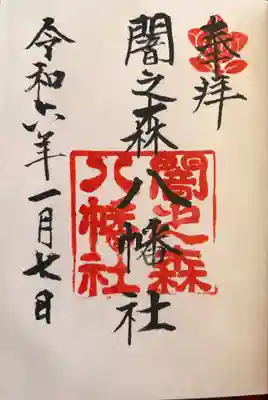 奉拝
闇之森八幡社
闇之森
八幡社
令和六年一月七日